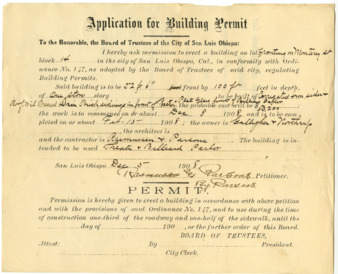 Application for Building Permit
To the Honorable, the Board of Trustees of the City of San Luis Obispo:
I hereby ask permission to erect a building on lot fronting on Monterey St
block 14 in the city of San Luis Obispo, Cal., in conformity with Ordi-
nance No. 147, as adopted by the Board of Trustees of said city, regulating
Building Permits.
Said building is to be 52 ft 6 in front by 100 ft feet in depth,
of One story to be built of Corrugated iron sides &
Roof will Brick front of Plate Glass front of
the probable cost $3200
the work is to commenced on or about Dec 1908, and is to be com-
pleted on or about Feb. 15 1908; the owner is Gallagher & Northrup
the architect is
and the contractor is Rasmussen & Parsons The building is in-
tended to be used Theatre & Billiard Parlor
San Luis Obispo Dec 5 1908
Rasmussen & Parsons Petitioner.
By Parsons
PERMIT.
Permission is hereby given to erect a building in accordance with above petition
and with the provisions of said Ordinance No. 147, and to use during the time
of construction one-third of the roadway and one-half of the sidewalk, until the
day of 190 , or the further order of this Board.
BOARD OF TRUSTEES,
Attest: By President.
City Clerk.